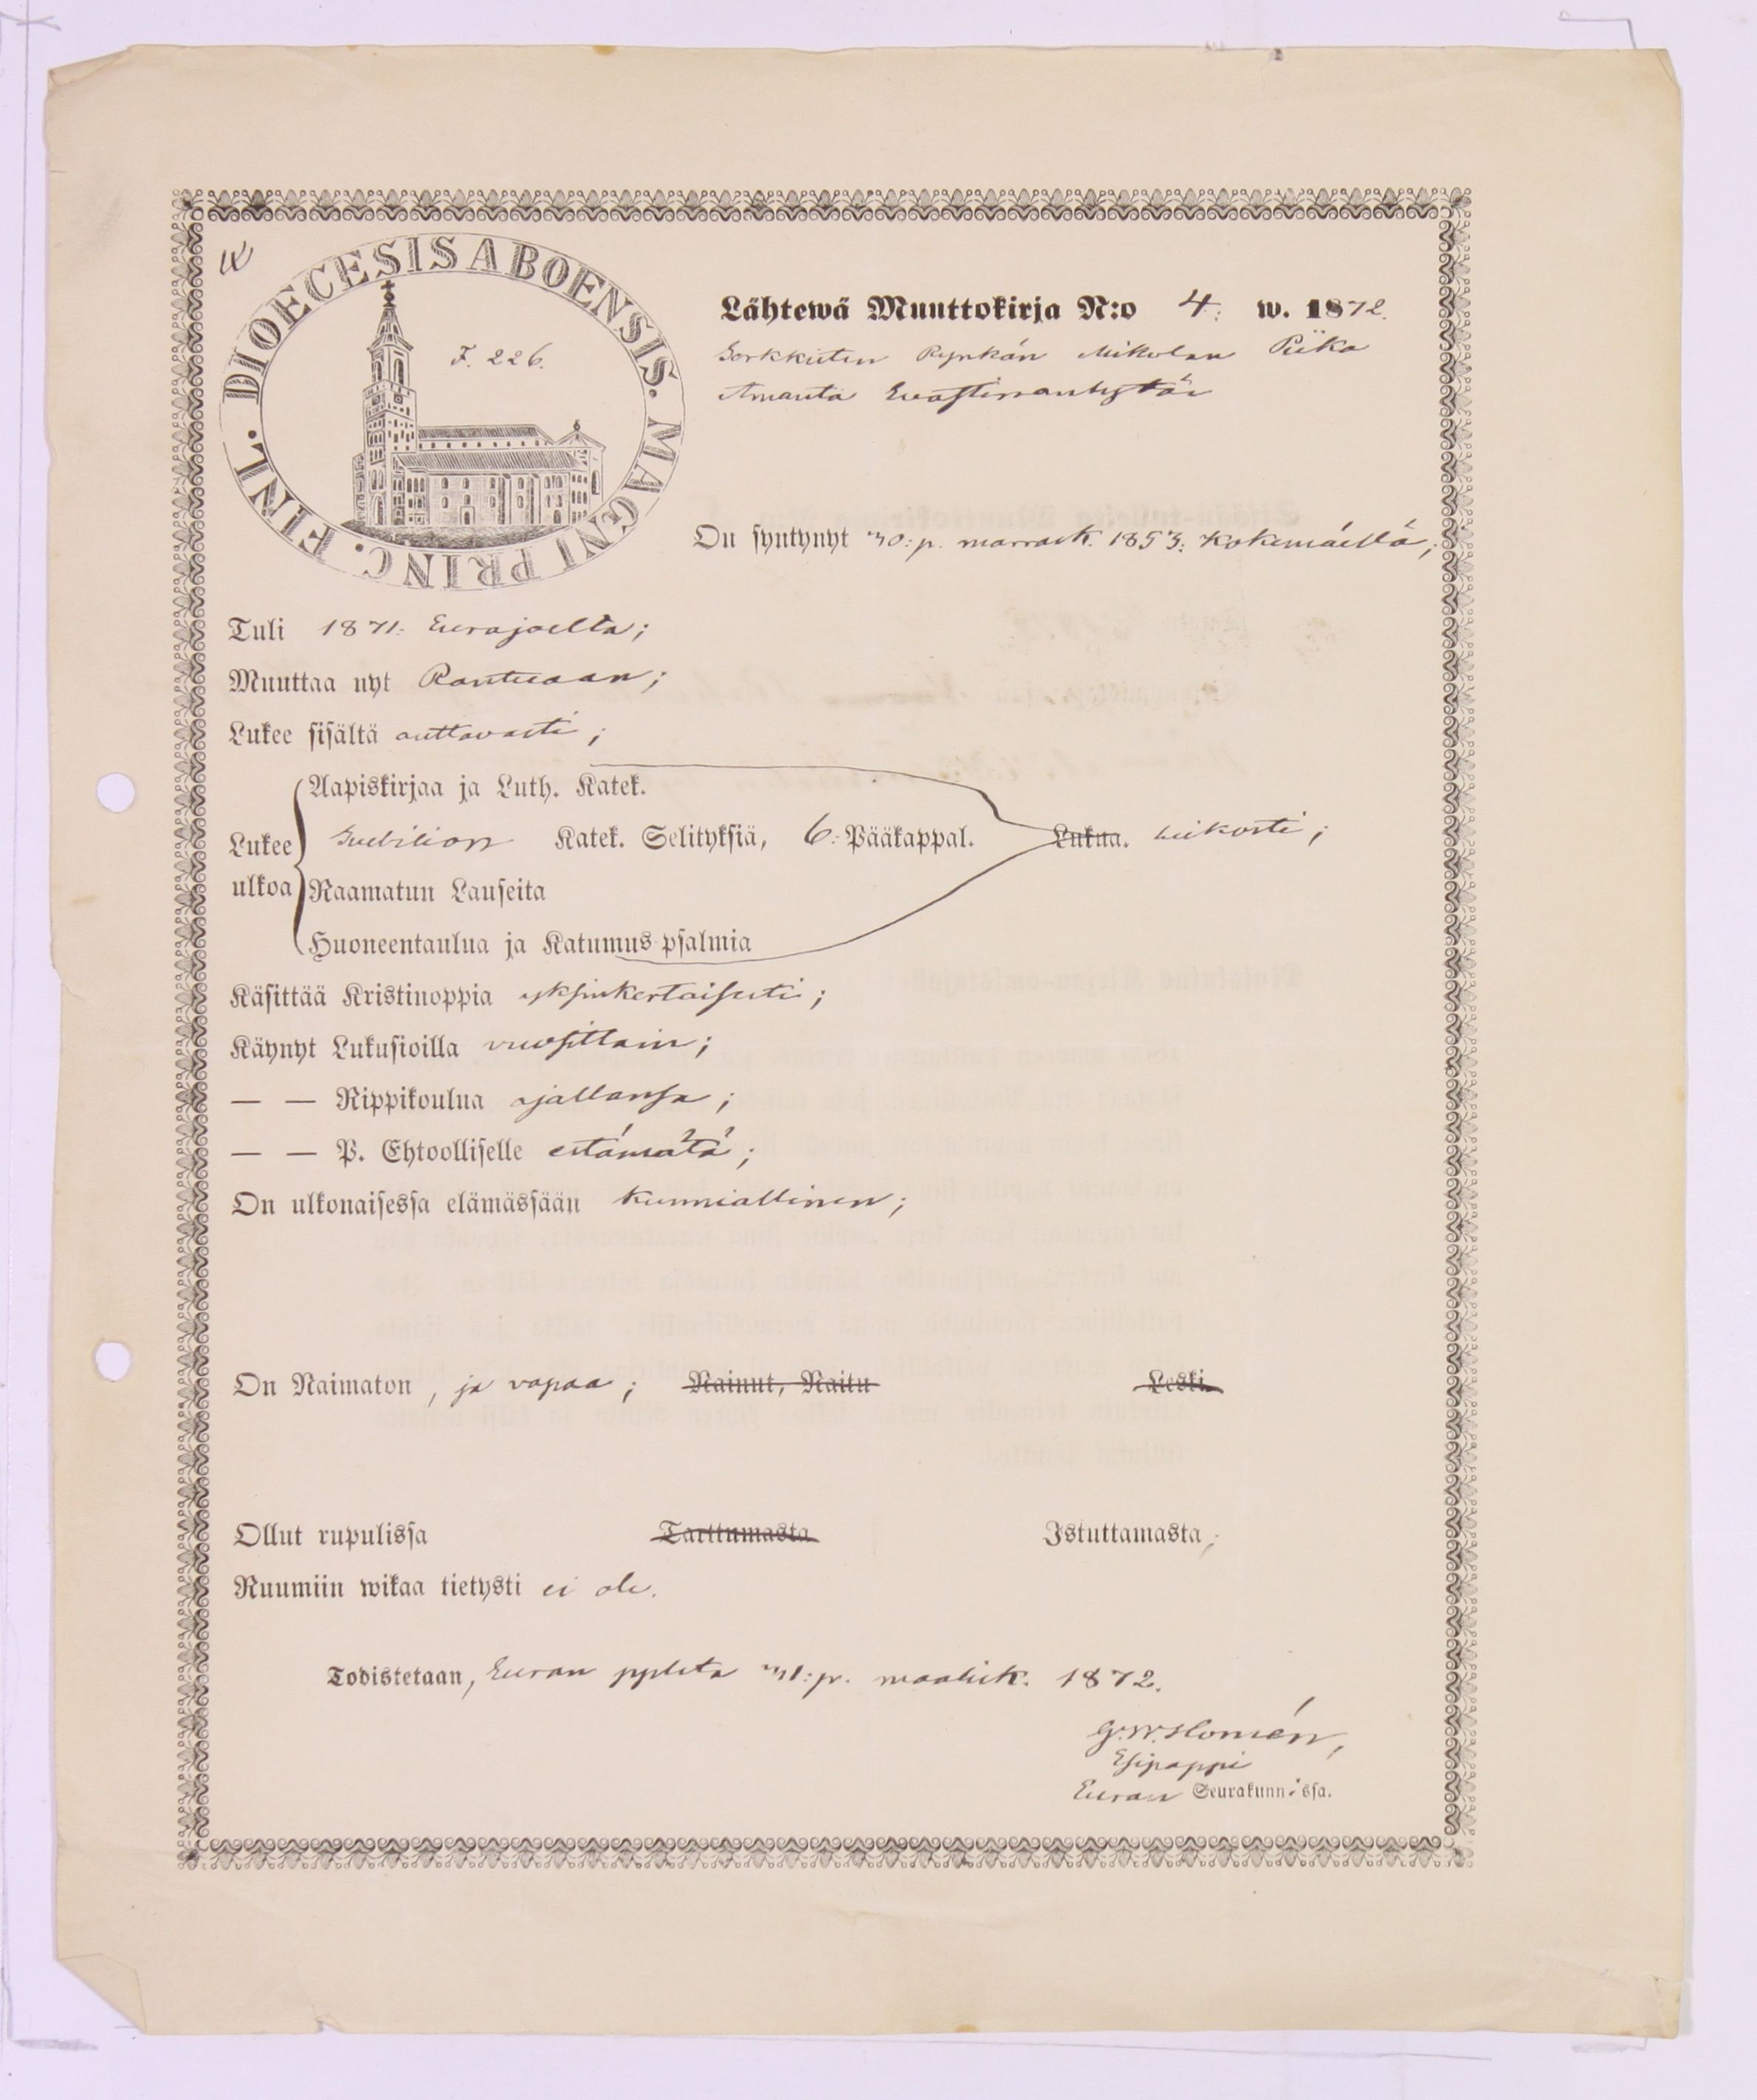 DIOECESIS ABOENSIS. MAGNI PRINC. FINL.
F. 226.
Lähtewä Muuttokirja N:o 4: w. 1872.
Sorkkisten Pynkän Mikolan Piika
Amanta Evastiinantytär
On syntynyt 30:p. marrask. 1853: Kokemäellä;
Tuli 1871: Eurajoelta;
Muuttaa nyt Rantuaan;
Lukee sisältä auttavasti;
Aapiskirjaa ja Luth. Katek.
Lukee Katek. Selityksiä, 6: Pääkappal. Lukua. heikosti;
ulkoa Raamatun Lauseita
Huoneentaulua ja Katumus-psalmia
Käsittää Kristinoppia yksinkertaisesti;
Käynyt Lukusioilla vuosittain;
— — Rippikoulua ajallansa;
— — P. Ehtoolliselle estämätä;
On ulkonaisessa elämässään kunniallinen;
On Naimaton, ja vapaa; Nainut, Naitu Leski.
Ollut rupulissa Tarttumasta Istuttamasta;
Ruumiin wikaa tietysti ei ole.
Todistetaan, Euran pplsta 31:p. maalisk. 1872.
G.W. Homén,
Esipappi
Euran Seurakunnissa.